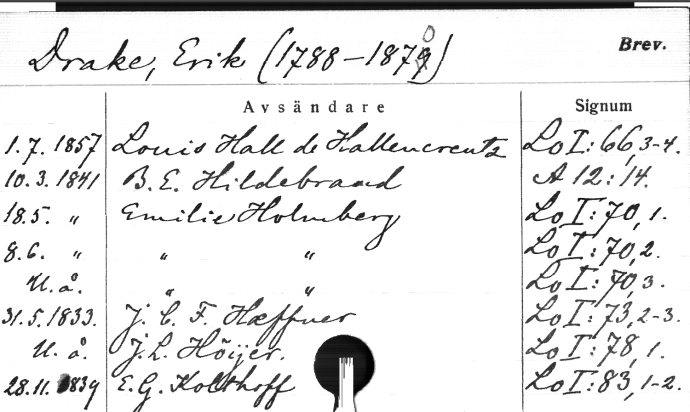 Drake, Erik (1788–1870) Brev.
Avsändare Signum
1.7. 1857 Louis Hall de Hallencreutz Lo I: 66, 3-4.
10.3. 1841 B. E. Hildebrand A 12:14.
18.5. " Emilie Holmberg Lo I: 70, 1.
8.6. " " " Lo I: 70, 2.
U. å. " " Lo I: 70, 3.
31.5. 1833. J. C. F. Hæffner Lo I: 73, 2-3.
U. å. J. L. Höijer. Lo I: 78, 1.
28.11. 1839 E. G. Kolthoff Lo I: 83, 1-2.